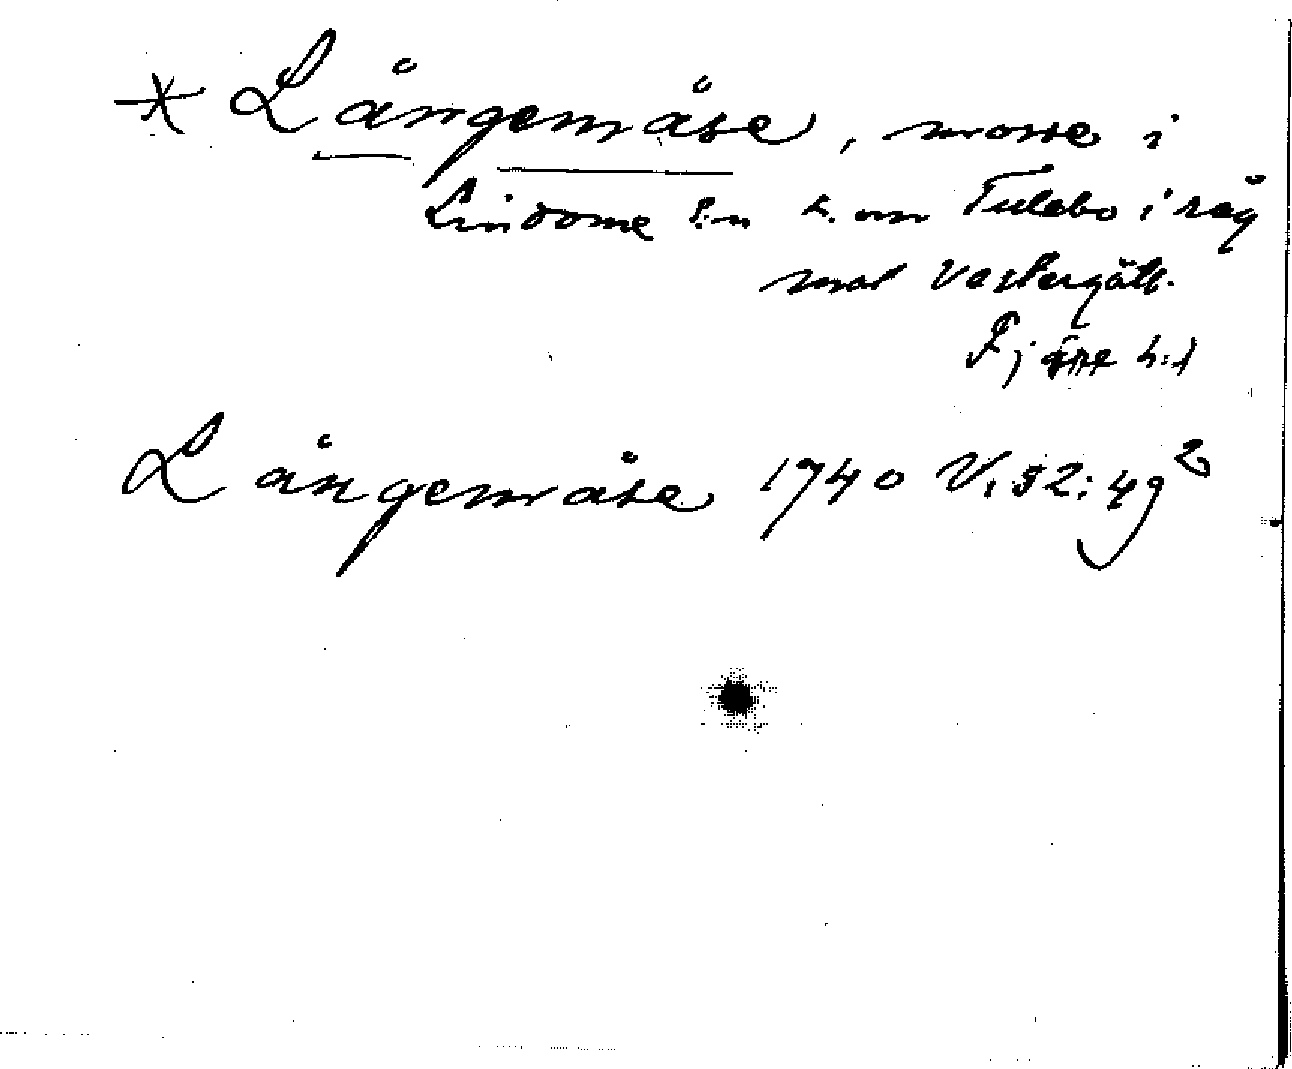 * Långemåse, mosse i
Lindome s:n ö. om Tulebo i råg
mot Västergötl.
Fjäre h:d
Långemåse 1740 V, 52: 49²